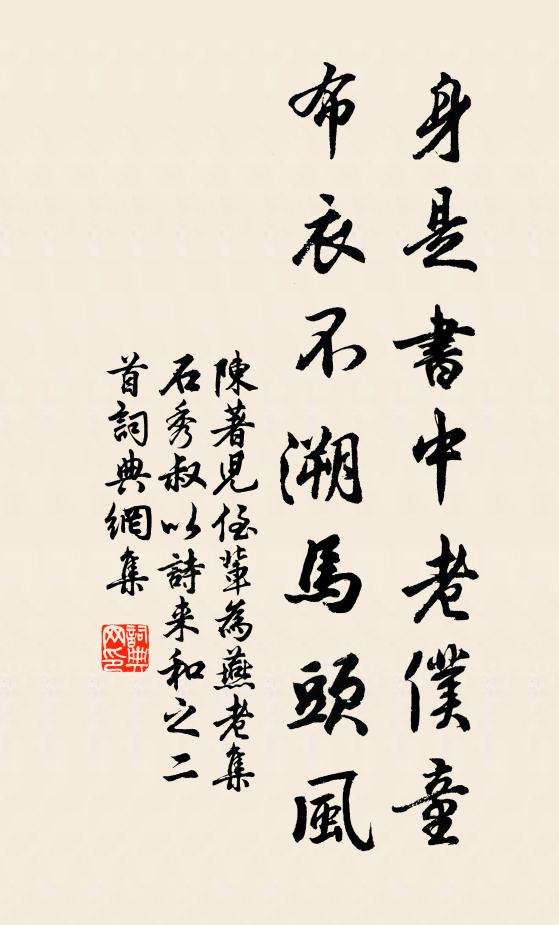 身是書中老僕童
布衣不溯馬頭風
陳著児侄輩為燕老集
石秀叔以詩来和之二
首詞典網集
詞典
网印